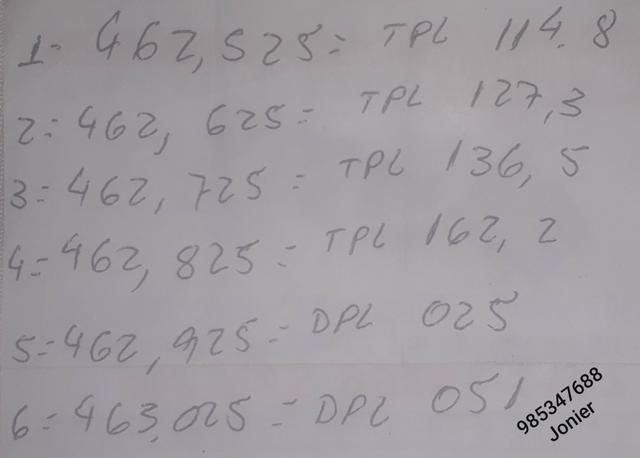 1- 462,525= TPL 114.8
2= 462, 625= TPL 127,3
3= 462, 725= TPL 136, 5
4= 462, 825= TPL 162, 2
5= 462, 925= DPL 025
6= 463.025= DPL 051
985347688
Jonier